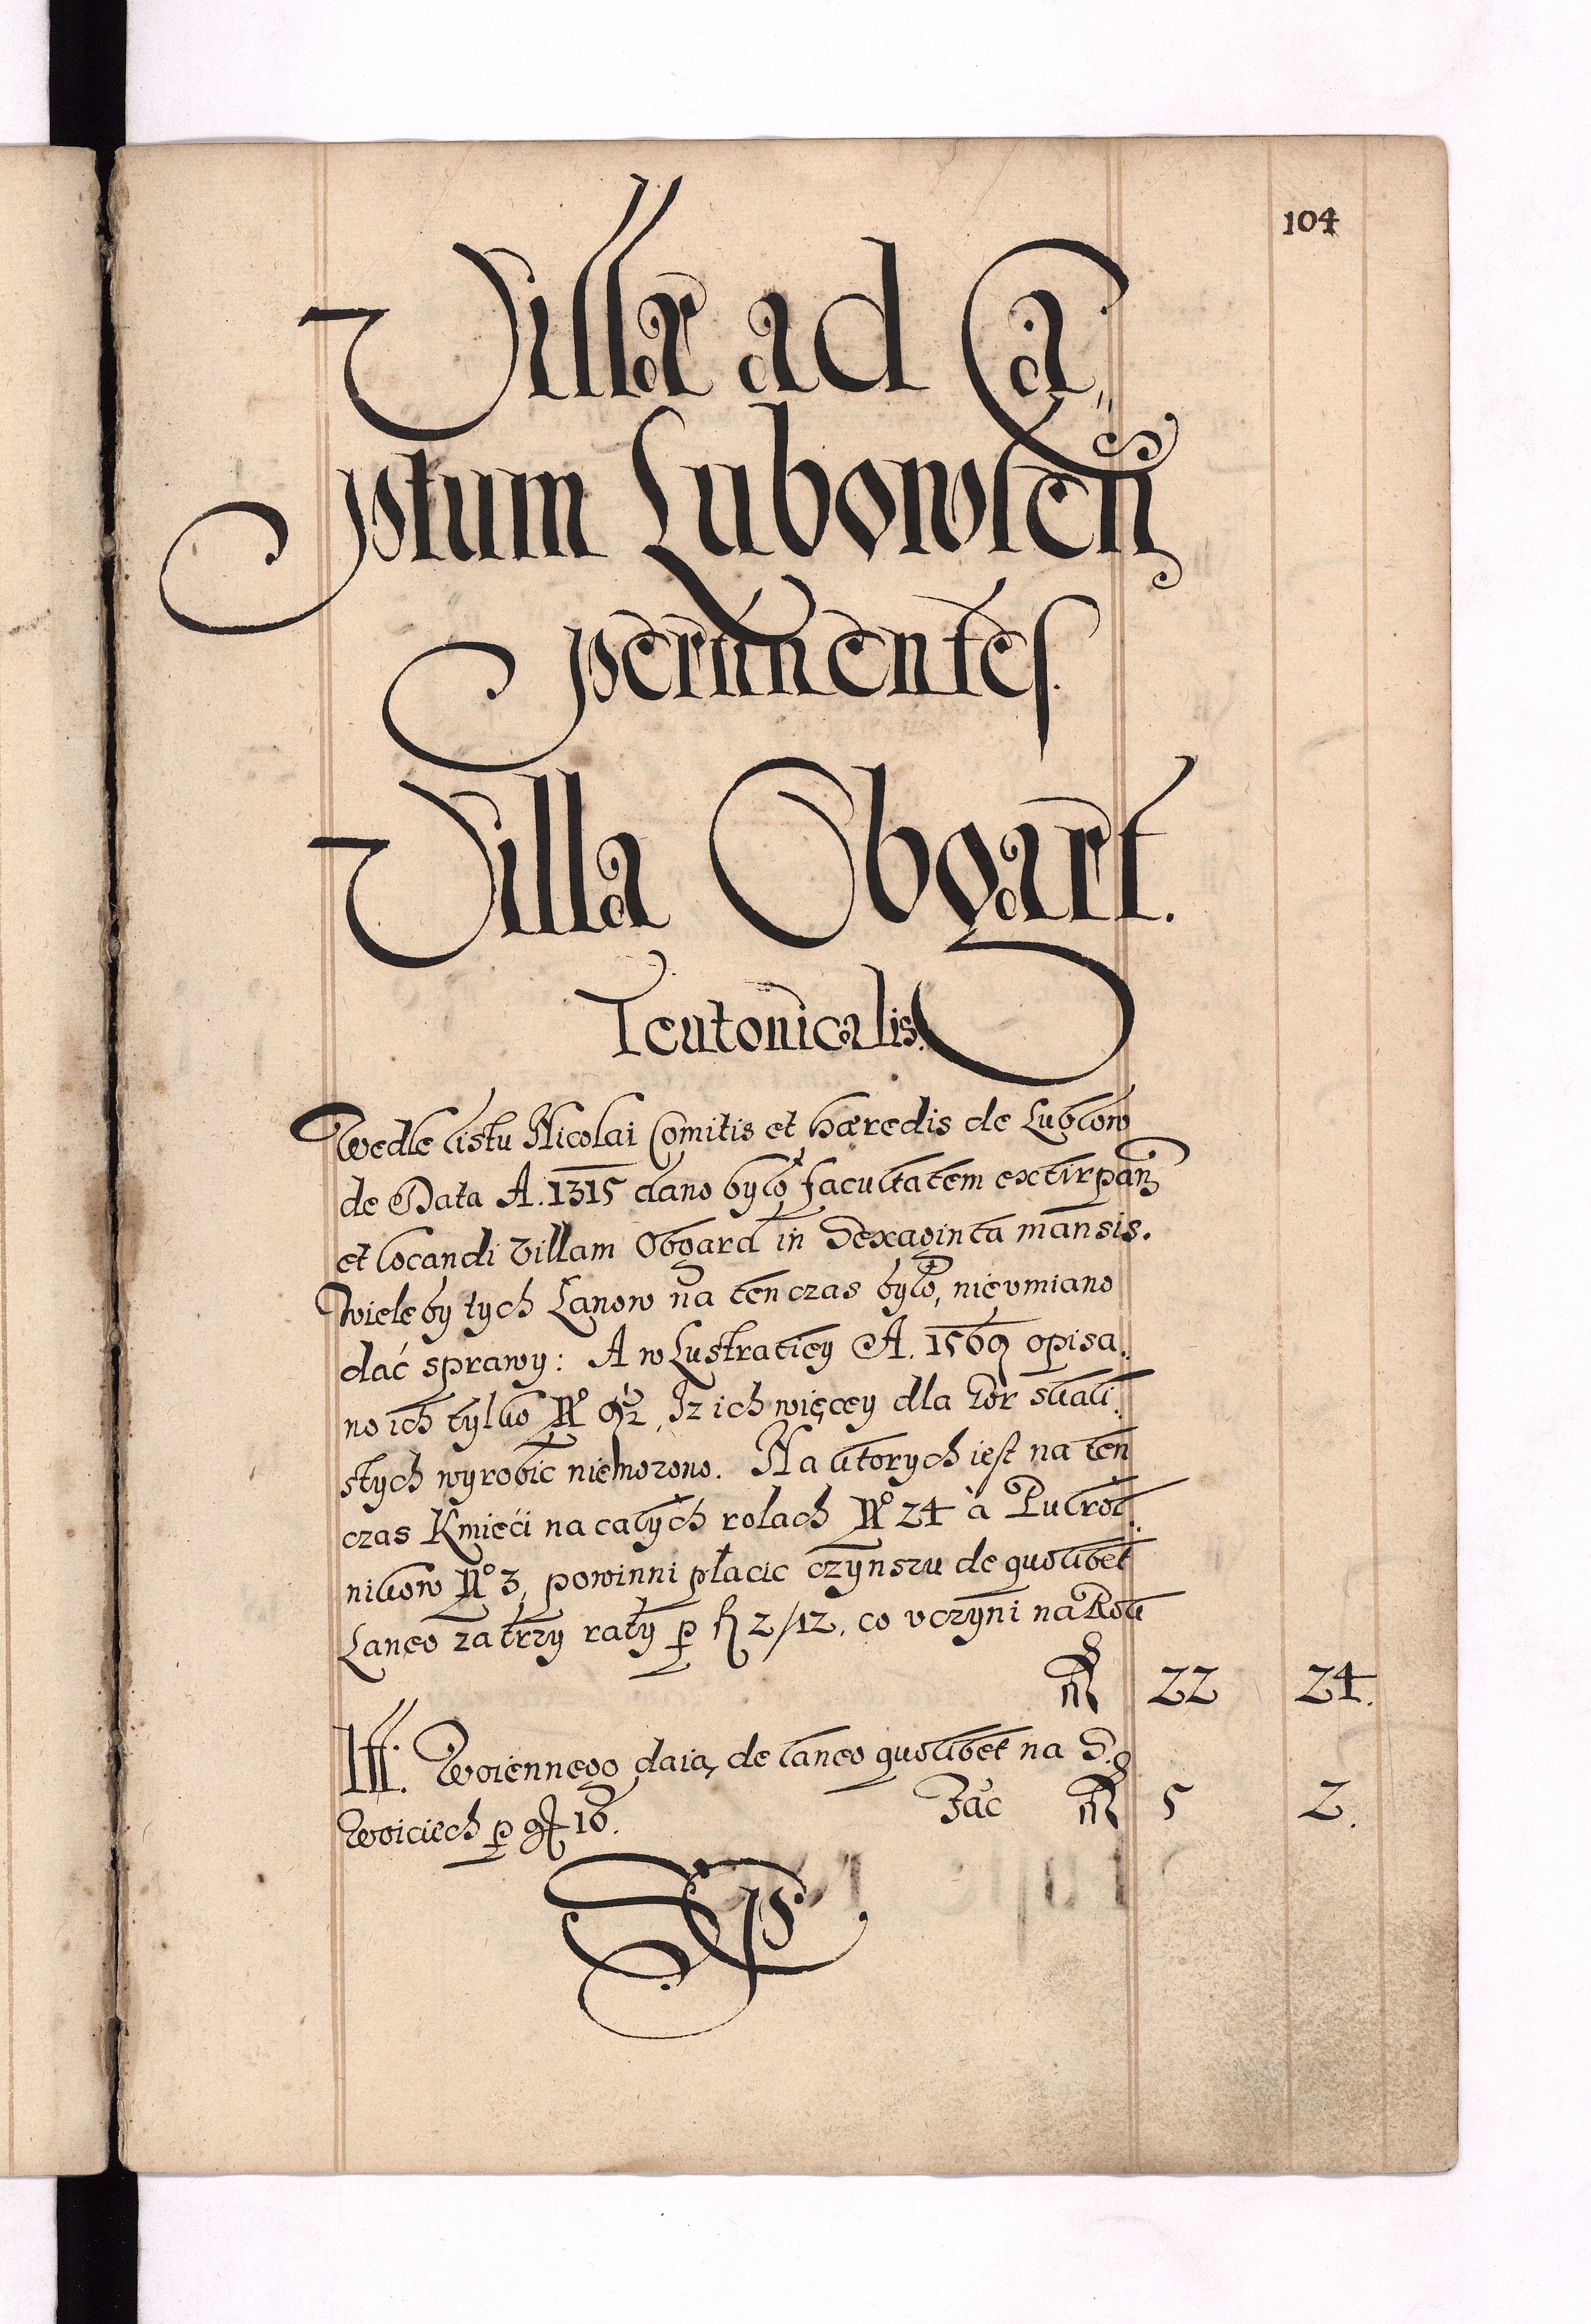 104
Villæ ad Ca„
ptum Lubowlen̄
pertinentes.
Villa Obgart.
Teutonicalis.
Wedle listu Nicolai Comitis et hæredis de Lublow
de Data A. 1315 dano było facultatem extirpan
et locandi villam Obgard in Sexaginta mansis.
Wiele by tych Łanow na ten czas było, nie vmiano
dać sprawy: A w Lustraciey A. 1569 opisa„
no ich tylko No 9½, Iz ich więcey dla Gor skali„
stych wyrobić niemozono. Na ktorych iest na ten
czas Kmieći na całych rolach No 24 à Pułrol„
nikow No 3, powinni płacic czynszu de quolibet
Laneo za trzy raty p fl 2/12, co vczyni na Rok
fl 22 24.
It. Woiennego daią de laneo quolibet na S.
Woiciech p gr 16. Fac fl 5 2.